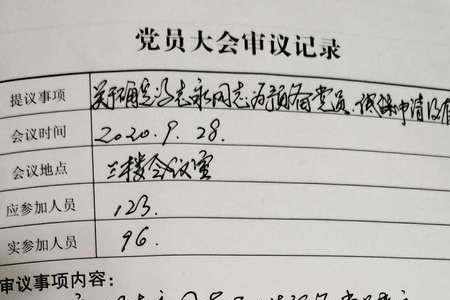 党员大会审议记录
提议事项 关于确定冯志永同志为预备党员
会议时间 2020.9.28.
会议地点 三楼会议室
应参加人员 123.
实参加人员 96.
审议事项内容：